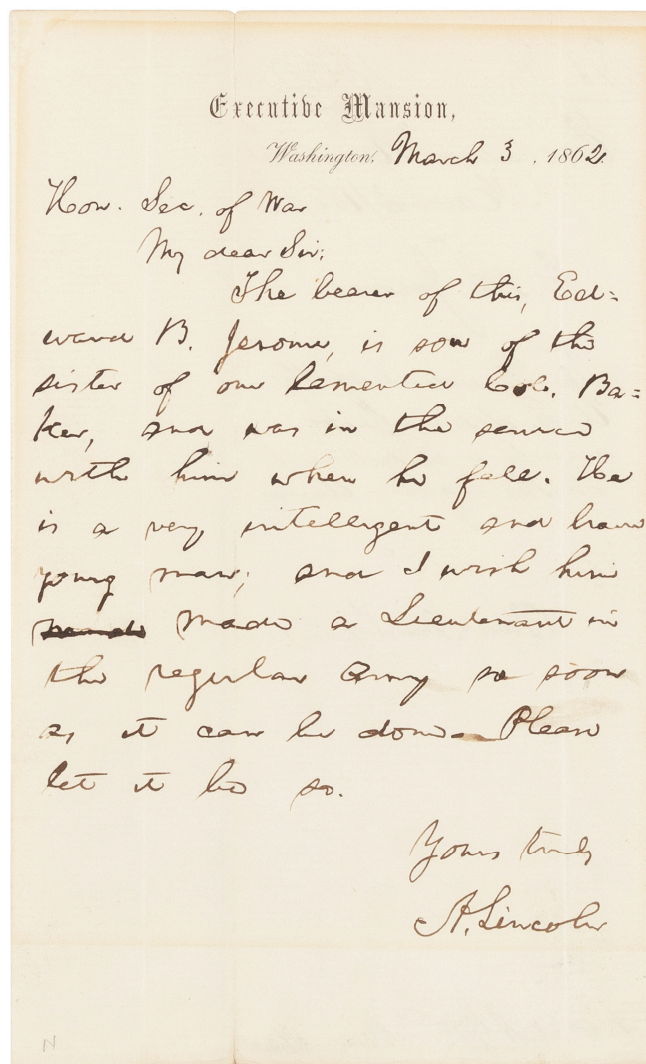 Executive Mansion,
Washington, March 3, 1862.
Hon. Sec. of War
My dear Sir:
The bearer of this, Ed=
ward B. Jerome, is son of the
sister of our lamented Col. Ba=
ker, and was in the service
with him when he fell. He
is a very intelligent and brave
young man; and I wish him
made a Lieutenant in
the regular Army so soon
as it can be done. Please
let it be so.
Yours truly
A. Lincoln
N